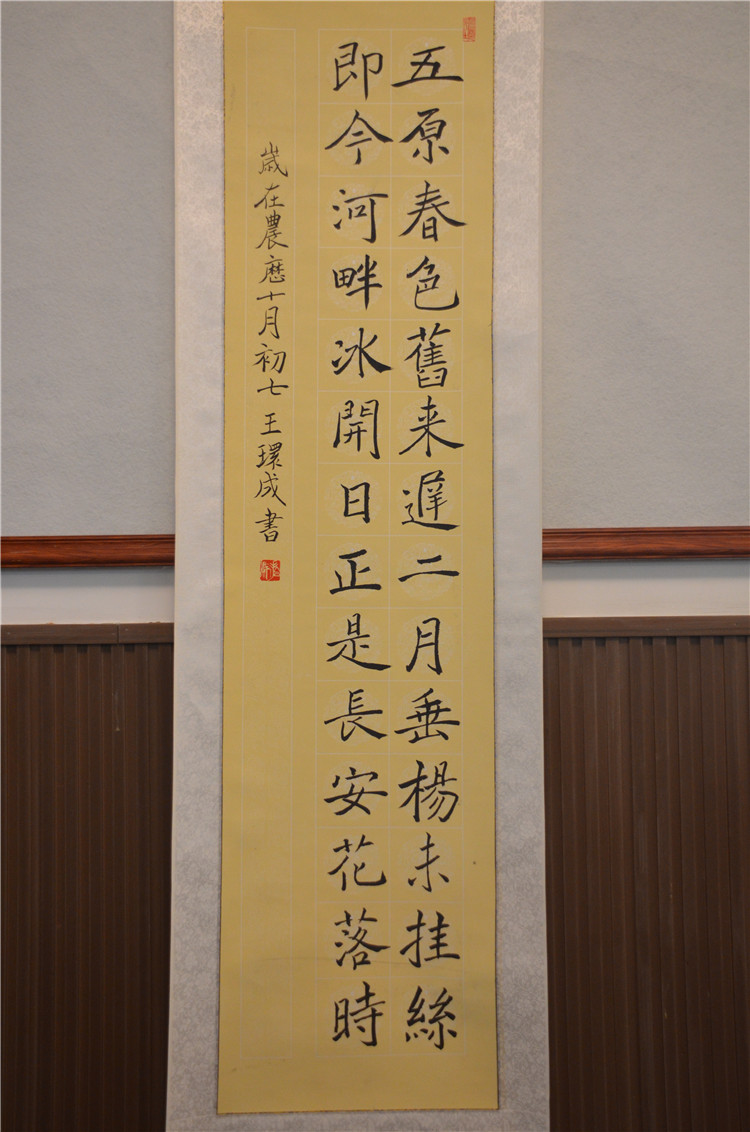 五原春色舊来遲二月垂楊未挂絲
即今河畔冰開日正是長安花落時
歲在農歷十月初七王環成書